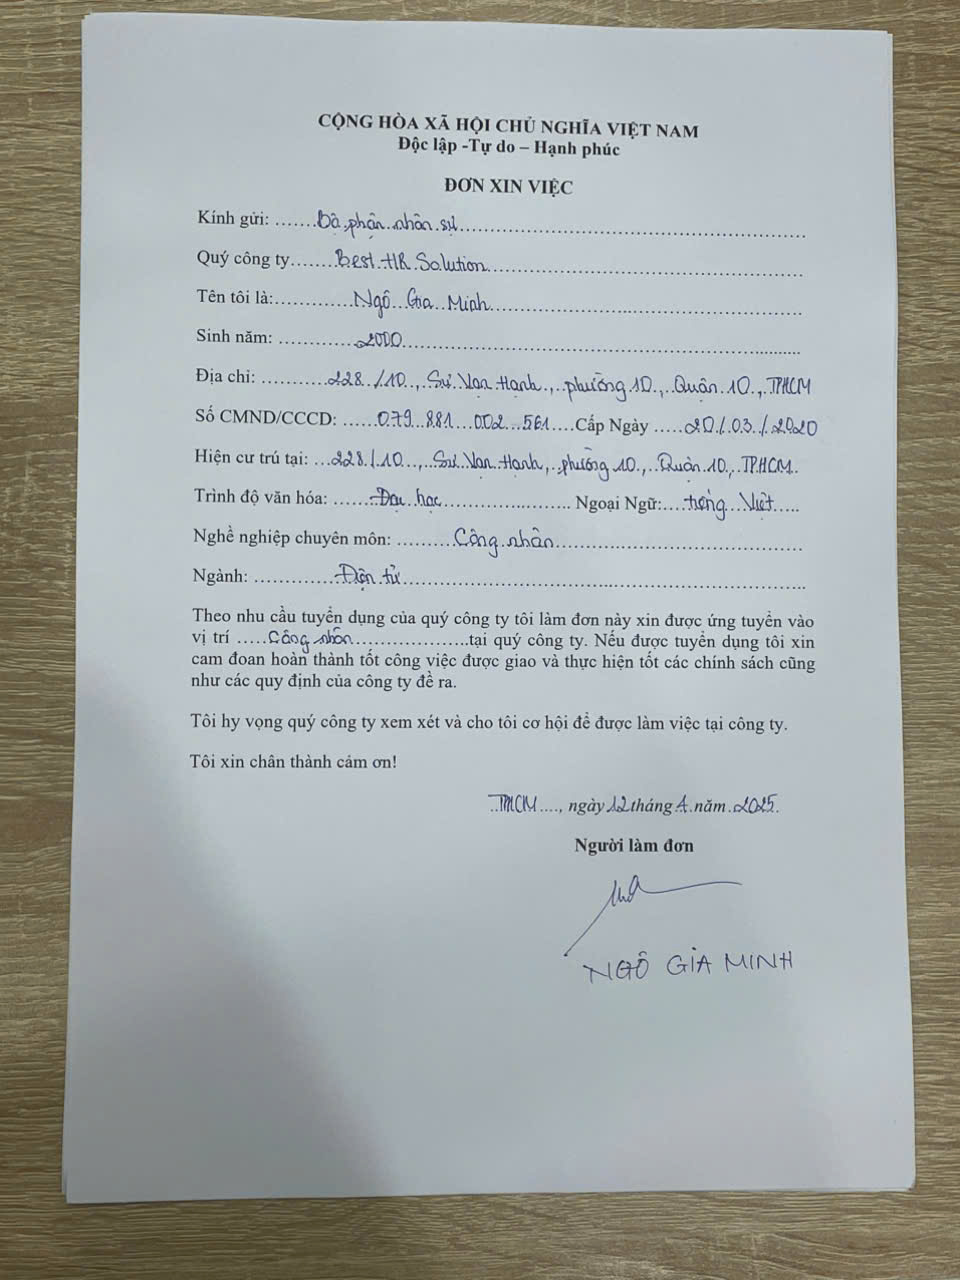 CỘNG HÒA XÃ HỘI CHỦ NGHĨA VIỆT NAM
Độc lập -Tự do – Hạnh phúc
ĐƠN XIN VIỆC
Kính gửi: .......Bộ phận nhân sự..........
Quý công ty.......Best HR Solution..........
Tên tôi là:.............Ngô Gia Minh..........
Sinh năm: .............2000..........
Địa chỉ: ............228./10..,.Sư.Vạn.Hạnh.,..phường.10.,..Quận.10.,.TPHCM
Số CMND/CCCD: ......079...881...002...561....Cấp Ngày .....20./.03../.2020
Hiện cư trú tại: ...228./.10..,..Sư.Vạn.Hạnh,.phường.10.,..Quận.10,.TP.HCM.
Trình độ văn hóa: .......Đại học.................... Ngoại Ngữ:....tiếng...Việt.....
Nghề nghiệp chuyên môn: ..........Công.nhân..........
Ngành: ..............Điện tử..........
Theo nhu cầu tuyển dụng của quý công ty tôi làm đơn này xin được ứng tuyển vào
vị trí .....Công nhân....................tại quý công ty. Nếu được tuyển dụng tôi xin
cam đoan hoàn thành tốt công việc được giao và thực hiện tốt các chính sách cũng
như các quy định của công ty đề ra.
Tôi hy vọng quý công ty xem xét và cho tôi cơ hội để được làm việc tại công ty.
Tôi xin chân thành cảm ơn!
..TPHCM...., ngày 12 tháng 4 năm 2025.
Người làm đơn
NGÔ GIA MINH